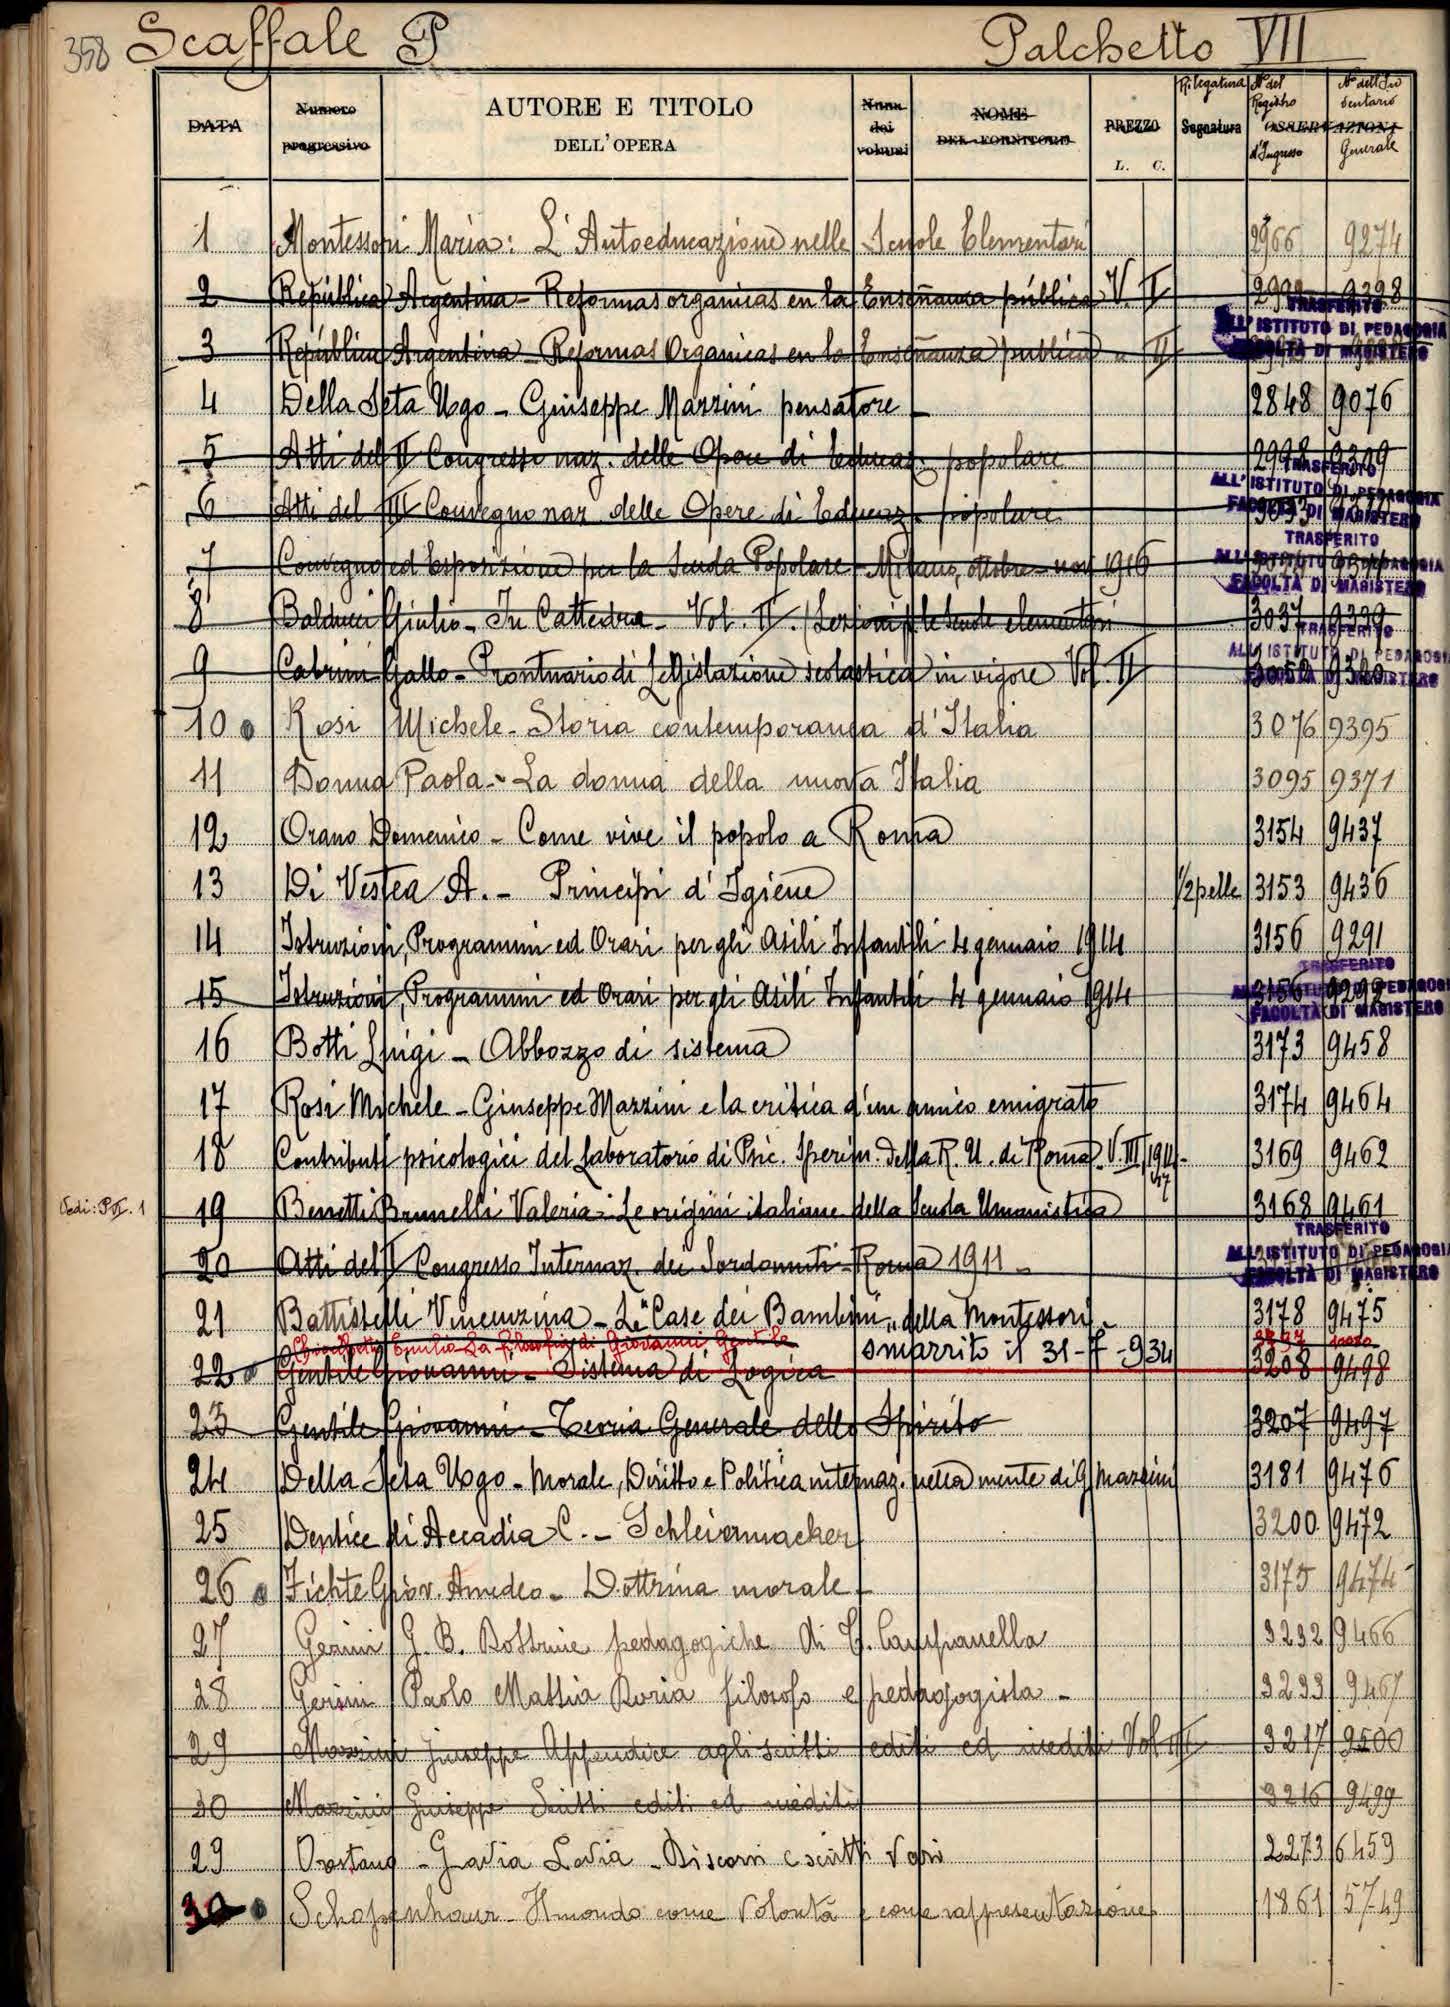 358 Scaffale P Palchetto VII
DATA Numero progressivo AUTORE E TITOLO DELL'OPERA Num. dei volumi NOME DEL FORNITORE PREZZO L. C. Rilegatura Segnatura Nº del Registro d'Ingresso OSSERVAZIONI Nº dell'Inventario Generale
1 Montessori Maria: L'Autoeducazione nelle Scuole Elementari 2966 9274
2 República Argentina - Reformas organicas en la Enseñanza pública V. II 9328
TRASFERITO
ALL'ISTITUTO DI PEDAGOGIA
FACOLTÀ DI MAGISTERO
3 República Argentina - Reformas Organicas en la Enseñanza publica " II
4 Della Seta Ugo - Giuseppe Mazzini pensatore - 2848 9076
5 Atti del II Congresso naz. delle Opere di Educaz. popolare 2998 9309
TRASFERITO
ALL'ISTITUTO DI PEDAGOGIA
FACOLTÀ DI MAGISTERO
6 Atti del III Convegno naz. delle Opere di Educaz. popolare
7 Convegno ed Esposizione per la Scuola Popolare - Milano, ottobre - nov 1916
TRASFERITO
ALL'ISTITUTO DI PEDAGOGIA
FACOLTÀ DI MAGISTERO
8 Balducci Giulio - In Cattedra - Vol. II. (Lezioni p. le Scuole elementari 3037 9339
9 Cabrini Gallo - Prontuario di Legislazione scolastica in vigore Vol. II 3052 9320
TRASFERITO
ALL'ISTITUTO DI PEDAGOGIA
FACOLTÀ DI MAGISTERO
10 Rosi Michele - Storia contemporanea d'Italia 3076 9395
11 Donna Paola - La donna della nuova Italia 3095 9371
12 Orano Domenico - Come vive il popolo a Roma 3154 9437
13 Di Vestea A. - Principi d'Igiene 1/2 pelle 3153 9436
14 Istruzioni, Programmi ed Orari per gli Asili Infantili 4 gennaio 1914 3156 9291
15 Istruzioni, Programmi ed Orari per gli Asili Infantili 4 gennaio 1914 3156 9292
TRASFERITO
ALL'ISTITUTO DI PEDAGOGIA
FACOLTÀ DI MAGISTERO
16 Botti Luigi - Abbozzo di sistema 3173 9458
17 Rosi Michele - Giuseppe Mazzini e la critica d'un amico emigrato 3174 9464
18 Contributi psicologici del Laboratorio di Psic. Sperim. della R. U. di Roma V. III, 1914-17 3169 9462
Vedi: P. IX. 1 19 Benetti Brunelli Valeria - Le origini italiane della Scuola Umanistica 3168 9461
20 Atti del II Congresso Internaz. dei Sordomuti - Roma 1911 -
TRASFERITO
ALL'ISTITUTO DI PEDAGOGIA
FACOLTÀ DI MAGISTERO
21 Battistelli Vincenzina - Le "Case dei Bambini" della Montessori - 3178 9475
Chiocchetti Emilio - La filosofia di Giovanni Gentile
22 Gentile Giovanni - Sistema di Logica smarrito il 31-7-934 3208 9498
23 Gentile Giovanni - Teoria Generale dello Spirito 3207 9497
24 Della Seta Ugo - Morale, Diritto e Politica internaz. nella mente di G Mazzini 3181 9476
25 Dentice di Accadia C. - Schleiermacker 3200 9472
26 Fichte Giov. Amedeo - Dottrina morale - 3175 9474
27 Gerini G. B. Dottrine pedagogiche di T. Campanella 3232 9466
28 Gerini Paolo Mattia Doria filosofo e pedagogista - 3233 9467
29 Mazzini Giuseppe Appendice agli scritti editi ed inediti Vol III 3217 9500
30 Mazzini Giuseppe Scritti editi ed inediti 3216 9499
29 Orestano - Gavia Levia - Discorsi e scritti vari 2273 6459
30 Schopenhaur - Il mondo come Volontà e come rappresentazione 1861 5749